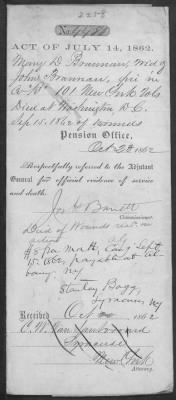 2258
No. 
ACT OF JULY 14, 1862.
Mary D. Brannan, wid of
John Brannan, priv in
Co. 101 New York Vols
Died at Washington D.C.
Sep. 15. 1862 of wounds
Pension Office,
Oct 28 1862
Respectfully referred to the Adjutant
General for official evidence of service
and death.
Jos. H. Barrett
Commissioner.
Died of Wounds
action
$8 per month, Com'g Sept
15. 1862, payable at Al-
bany, NY
Stanley Bagg,
Syracuse, NY
Received Oct 1862
C. W.
Syracuse
New York
Attorney.